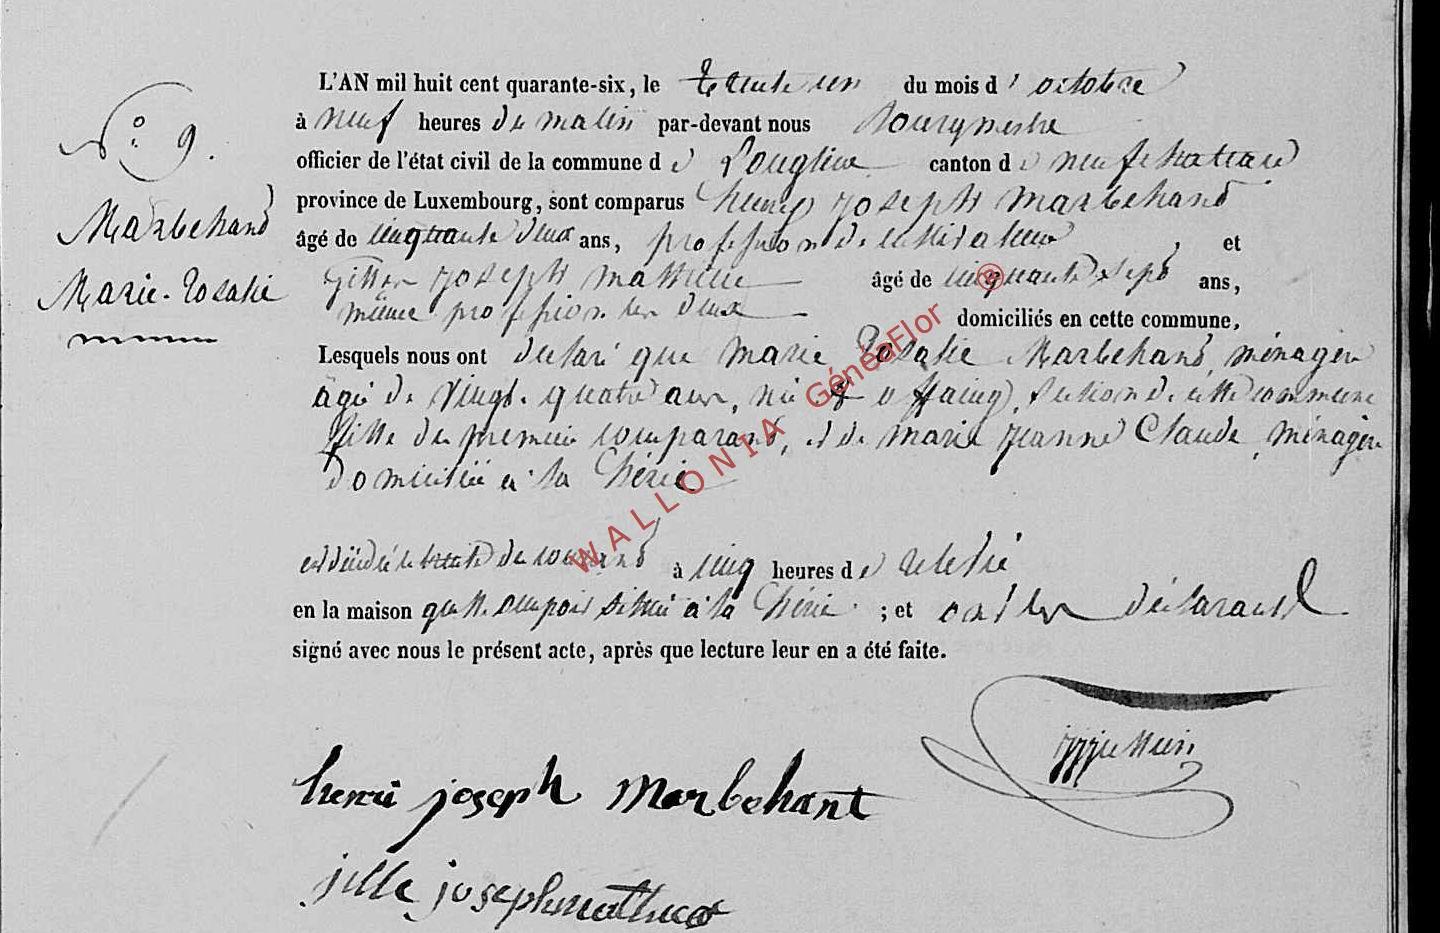 N° 9.
Marbehand
Marie-Rosalie
L'AN mil huit cent quarante-six, le trente un du mois d'octobre
à neuf heures du matin par-devant nous Bourgmestre
officier de l'état civil de la commune de Longlier canton de neufchateau
province de Luxembourg, sont comparus henry joseph marbehand
âgé de cinquante deux ans, profession de cultivateur, et
joseph mathieu âgé de cinquante sept ans,
même profession domiciliés en cette commune,
Lesquels nous ont declaré que marie Rosalie Marbehand, ménagere
agée de vingt-quatre ans, née à offaing, section de cette commune
fille du premier comparant, et de marie jeanne Claude, ménagere
domiciliée à la Chérie
est décédée le trente du courant à cinq heures de relevé
en la maison qu'elle occupoit située à la Chérie ; et ont les déclarants
signé avec nous le présent acte, après que lecture leur en a été faite.
henri joseph marbehant
jille joseph mathieu
WALLONIA GénéaFlor ®